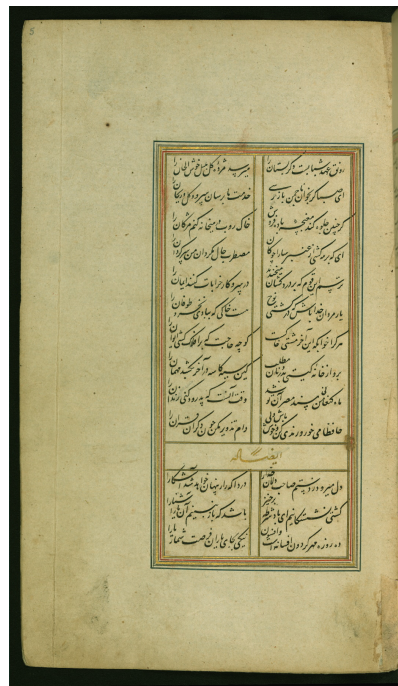 رونق عهد شبابست دگر بستان را میرسد مژده گل بلبل خوش الحان را
ای صبا گر بجوانان چمن بازرسی خدمت ما برسان سرو و گل و ریحان را
گر چنین جلوه کند مغبچه باده فروش خاک روب در میخانه کنم مژگان را
ای که بر مه کشی از عنبر سارا چوگان مضطرب حال مگردان من سرگردان را
ترسم این قوم که بر دردکشان میخندند در سر کار خرابات کنند ایمان را
یار مردان خدا باش که در کشتی نوح هست خاکی که به آبی نخرد طوفان را
هر کرا خوابگه آخر مشتی خاکست گو چه حاجت که بر افلاک کشی ایوان را
برو از خانه گیتی بدر و نان مطلب کین سیه کاسه در آخر بکشد مهمان را
ماه کنعانی من مسند مصر آن تو شد وقت آنست که بدرود کنی زندان را
حافظا می خور و رندی کن و خوش باش ولی دام تزویر مکن چون دگران قرآن را
ایضاً له
دل میرود ز دستم صاحبدلان خدا را دردا که راز پنهان خواهد شد آشکارا
کشتی نشستگانیم ای باد شرطه برخیز باشد که باز بینیم آن یار آشنا را
ده روزه مهر گردون افسانه است و افسون نیکی بجای یاران فرصت شمار یارا